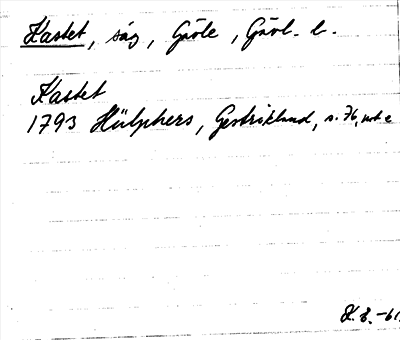 Kastet, såg, Gävle, Gävl. l.
Kastet
1793 Hülphers, Gestrikland, s. 76, not e
K.E. -61.